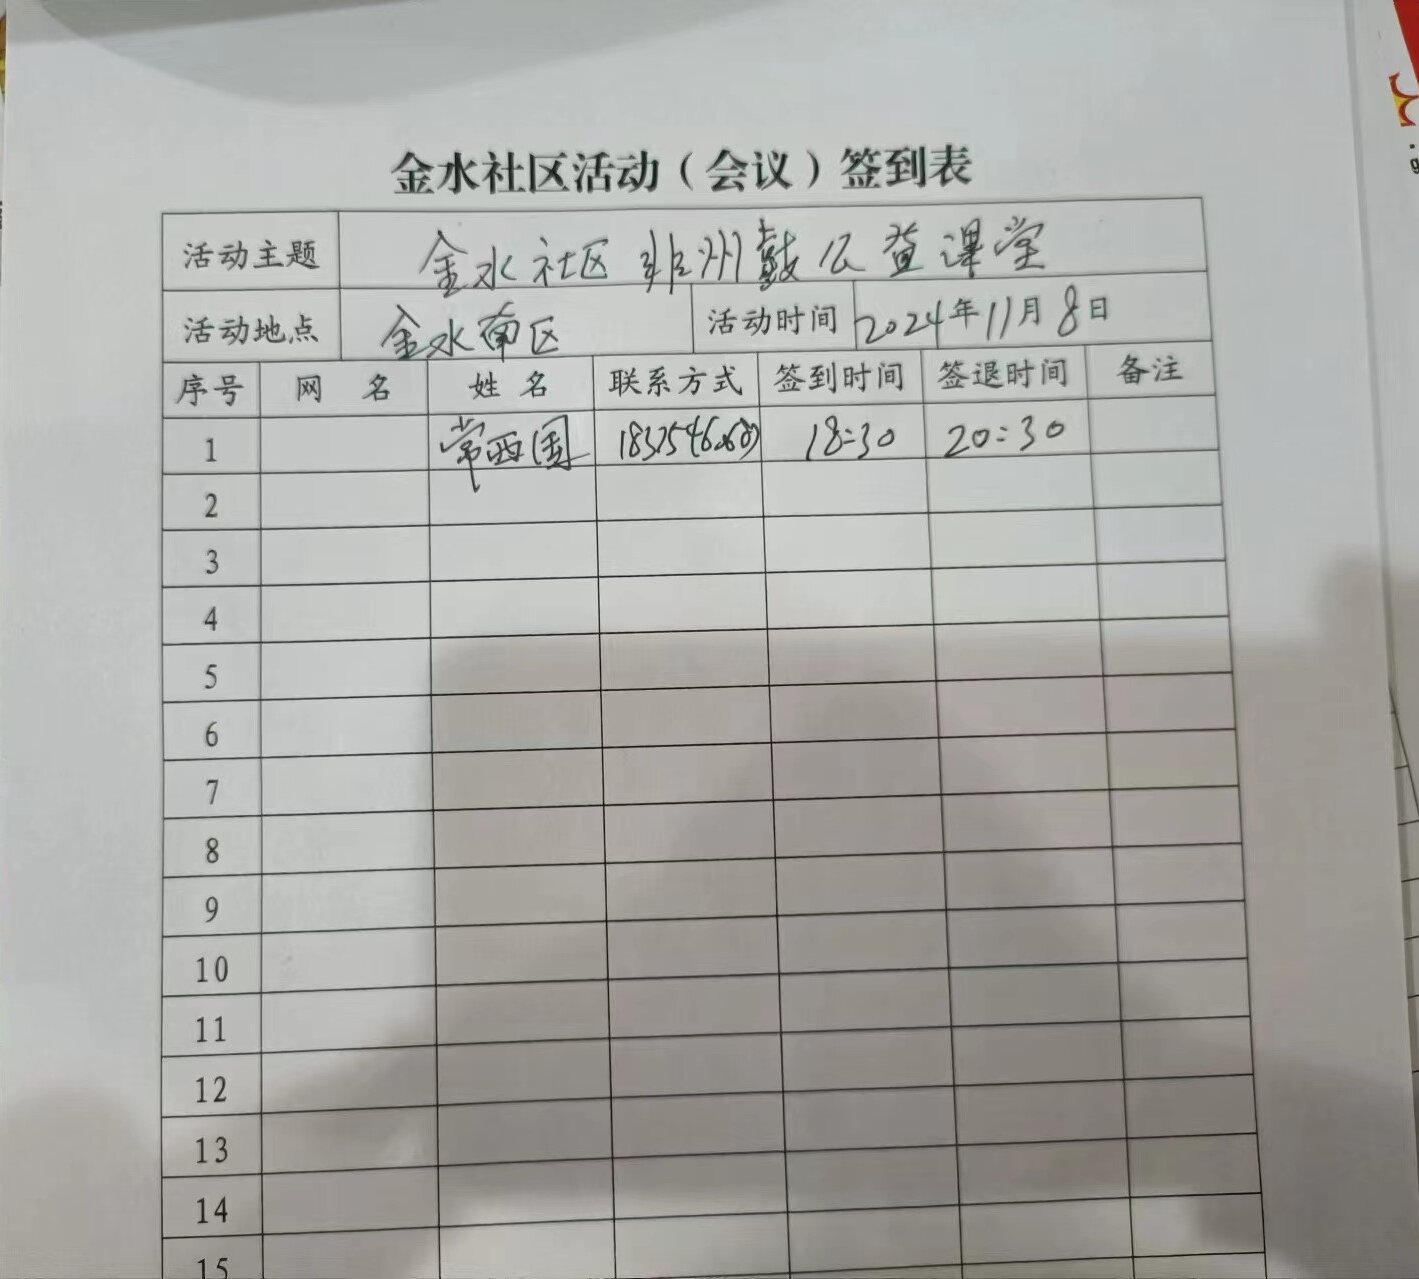 金水社区活动（会议）签到表
活动主题 金水社区非州鼓公益课堂
活动地点 金水南区 活动时间 2024年11月8日
序号 网 名 姓 名 联系方式 签到时间 签退时间 备注
1 常西国 18:30 20:30
2
3
4
5
6
7
8
9
10
11
12
13
14
15